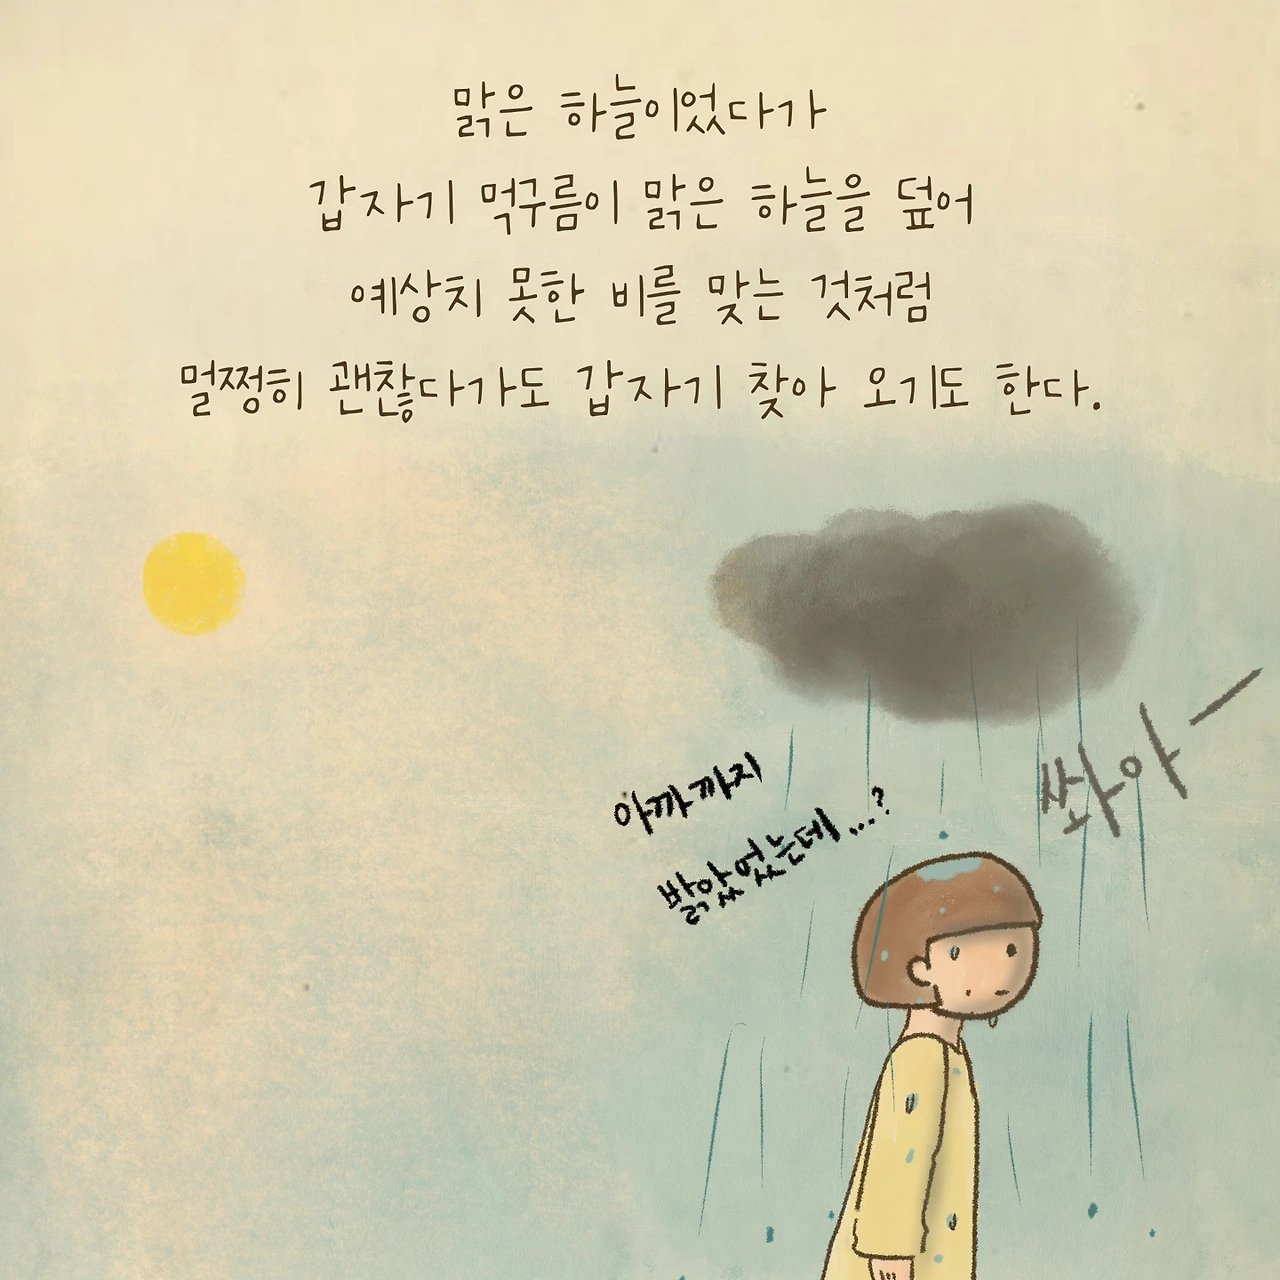 맑은 하늘이었다가
갑자기 먹구름이 맑은 하늘을 덮어
예상치 못한 비를 맞는 것처럼
멀쩡히 괜찮다가도 갑자기 찾아 오기도 한다.
아까까지
밝았었는데...?
쏴아ー